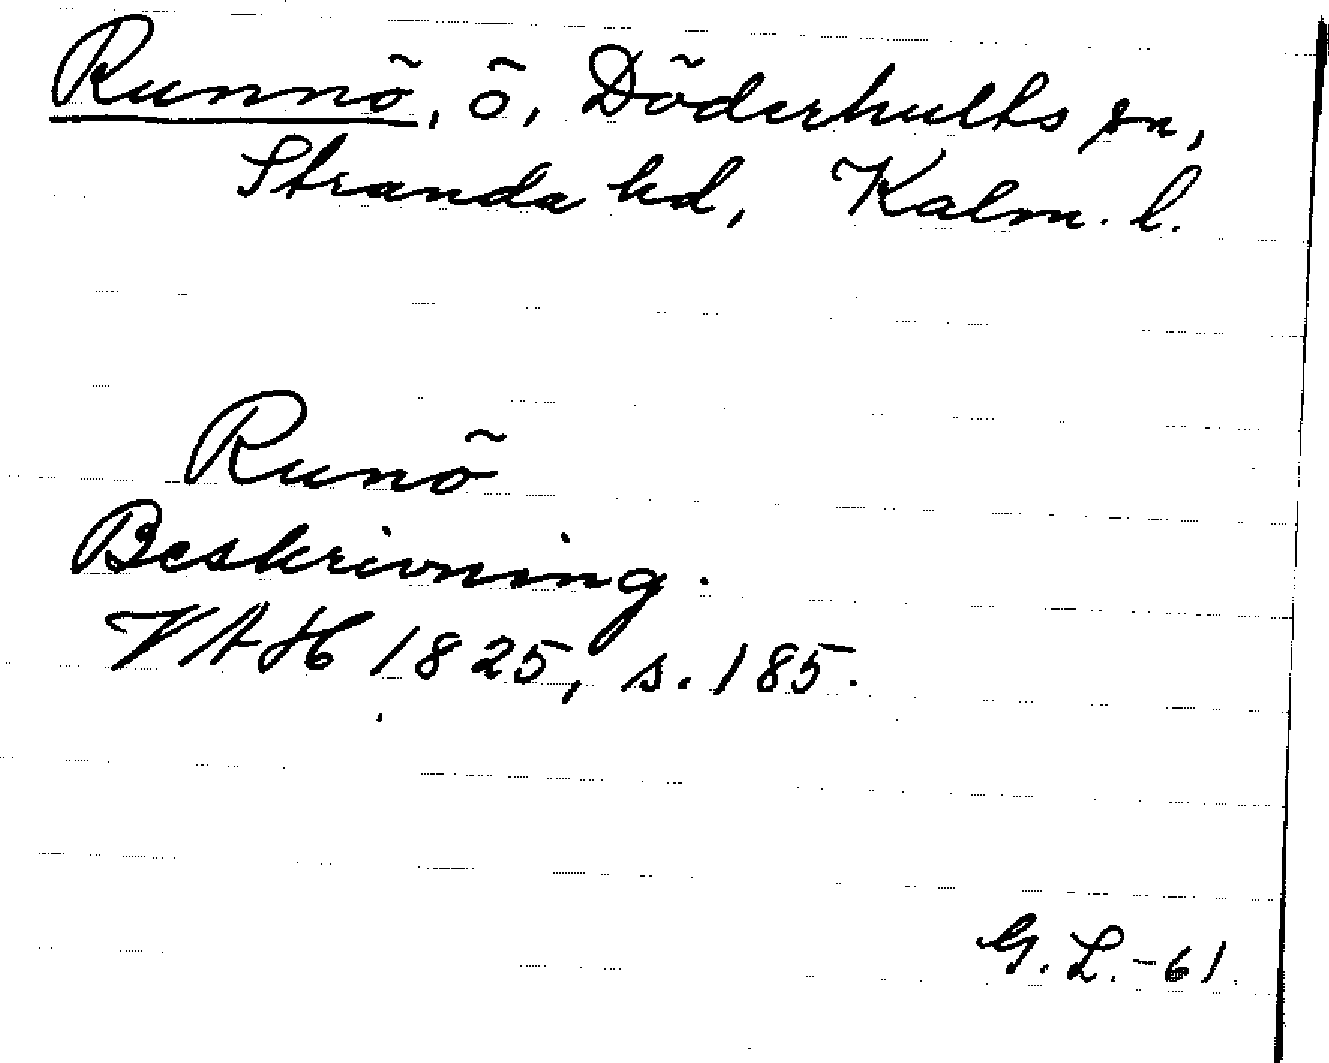 Runnö, ö, Döderhults sn,
Stranda hd, Kalm. l.
Runö
Beskrivning.
VAH 1825, s. 185.
G. L. -61.